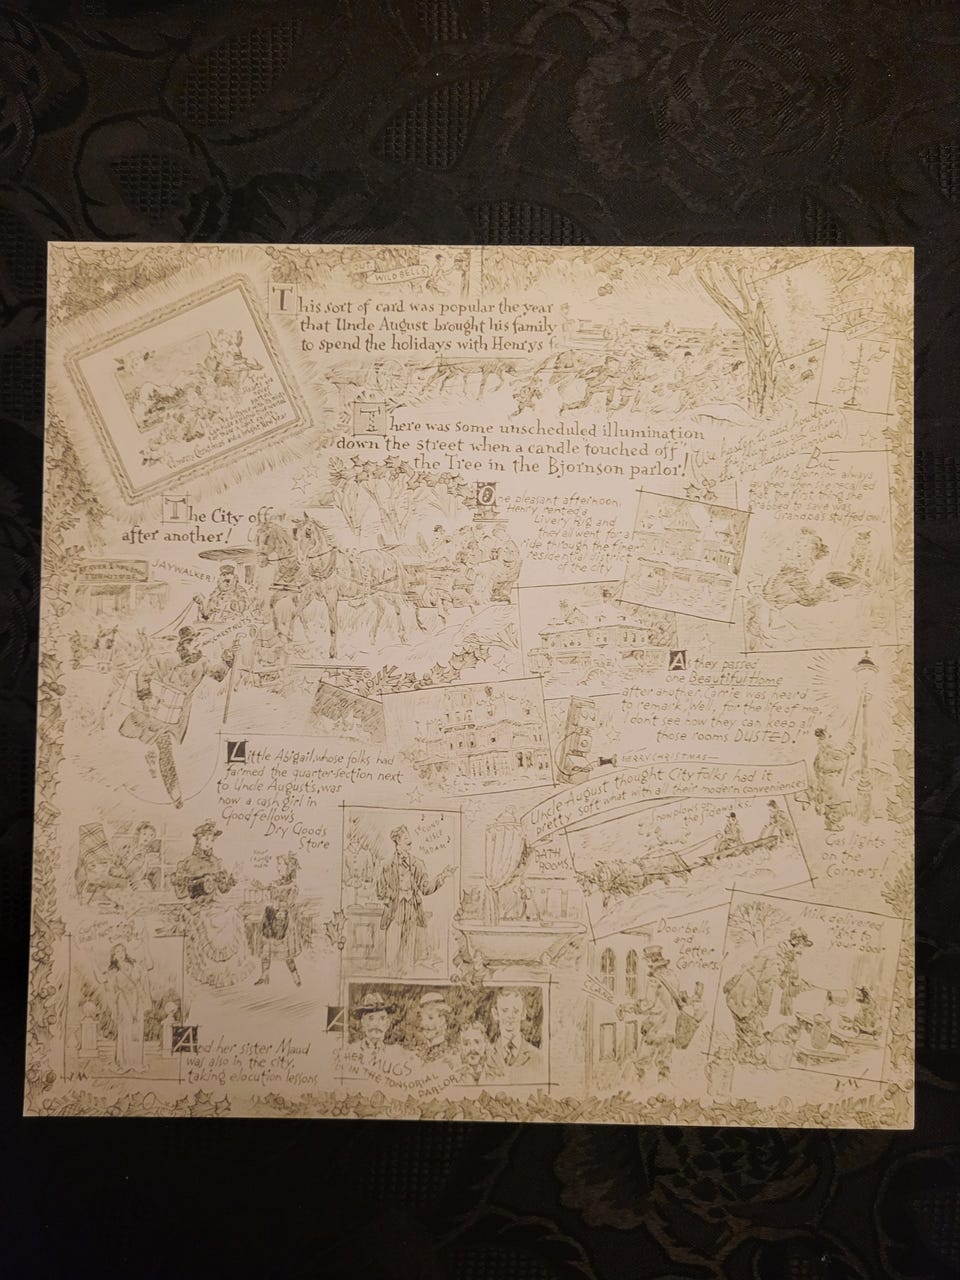 OUT WILD BELLS
This sort of card was popular the year
that Uncle August brought his family
to spend the holidays with Henrys
There was some unscheduled illumination
down the street when a candle touched off
the Tree in the Bjornson parlor!
(We hasten to add however
But
Mrs. Bjornson always
laughed when she recalled
that the first thing she
grabbed to save was
Grandpas stuffed owl!
The City off
after another!
One pleasant afternoon,
Henry rented a
Livery Rig and
they all went for a
ride through the finer
residential district
of the city
FURNITURE
JAYWALKER!
CHESTNUTS
As they passed
one Beautiful Home
after another, Carrie was heard
to remark, "Well, for the life of me,
I dont see how they can keep all
those rooms DUSTED!"
MERRY CHRISTMAS
Little Abigail, whose folks had
farmed the quarter-section next
to Uncle Augusts, was
now a cash girl in
Goodfellows
Dry Goods
Store
Uncle August thought City folks had it
pretty soft what with all their modern conveniences
BATH
ROOMS!
Snow plows on
the sidewalks!
Gas lights
on the
Corners!
SECOND
AISLE
MADAM
YOUR
CHANGE
MADAM
Curfew
Doorbells
and
Letter
Carriers!
Milk delivered
right to
your Door
And her sister Maud
was also in the city,
taking elocution lessons
HER MUGS
IN THE TONSORIAL
PARLOR